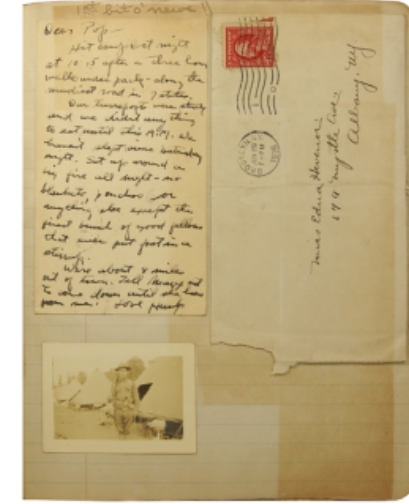 1st bit o' news!)
Dear Pop -
Hit camp last night
at 10:15 after a three hour
walk under party - along the
muddiest road in 7 states.
Our transports were stuck
and we didn't anything
to eat until this A.M. We
haven't slept since Saturday
night. Sat up around a
big fire all night - no
blankets, ponchos or
anything else except the
finest bunch of good fellows
that ever put foot in a
stirrup.
We're about 4 miles
out of town. Tell
to come down until she hears
from me.
Miss Edna Hevenor
679 Myrtle Ave
Albany, NY
1916